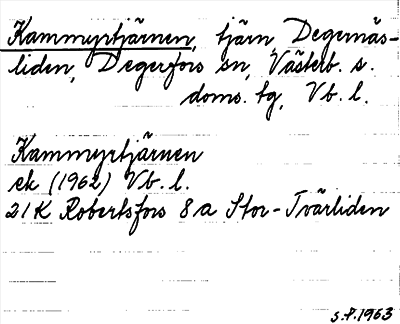 Kammyrtjärnen, tjärn, Degernäs-
liden, Degerfors sn, Västerb. s.
doms. tg, Vb. l.
Kammyrtjärnen
ek (1962) Vb. l.
21K Robertsfors 8 a Stor-Tvärliden
S.P. 1963